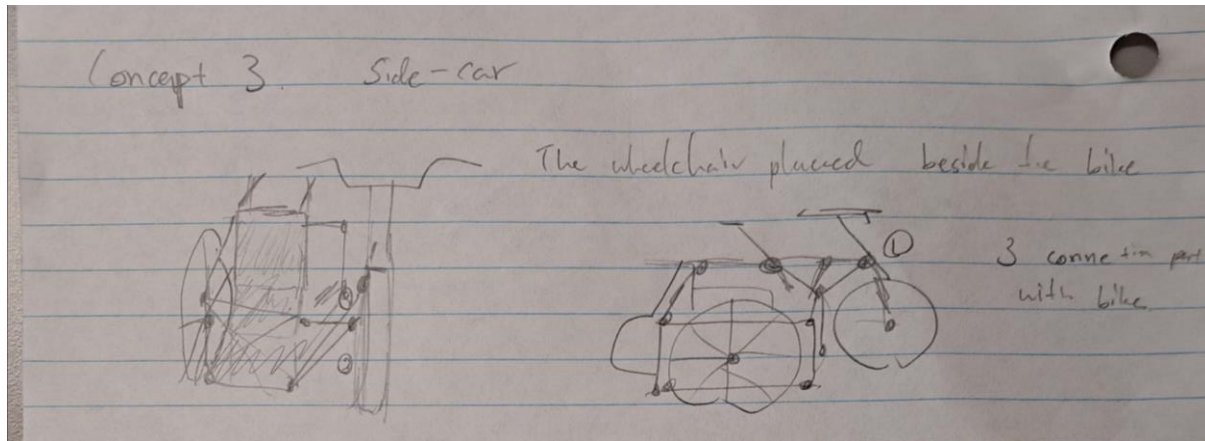 Concept 3. Side-car
The wheelchair placed beside the bike
①
3 connectin part
with bike
②
③